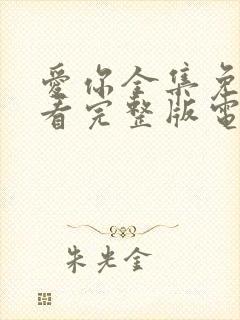 愛你全集免
看完整版電
朱光金